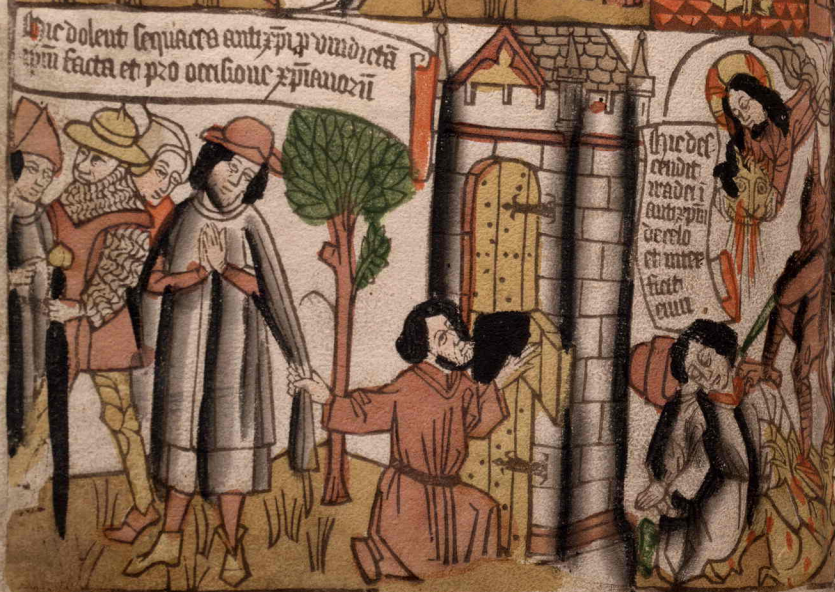 Hic dolent sequaces antixp̄i p vindictā
ip̄m facta et pro occisione xp̄ianorū
Hic des
cendit
cedit
antixp̄m
de celo
et inter
ficit
eum